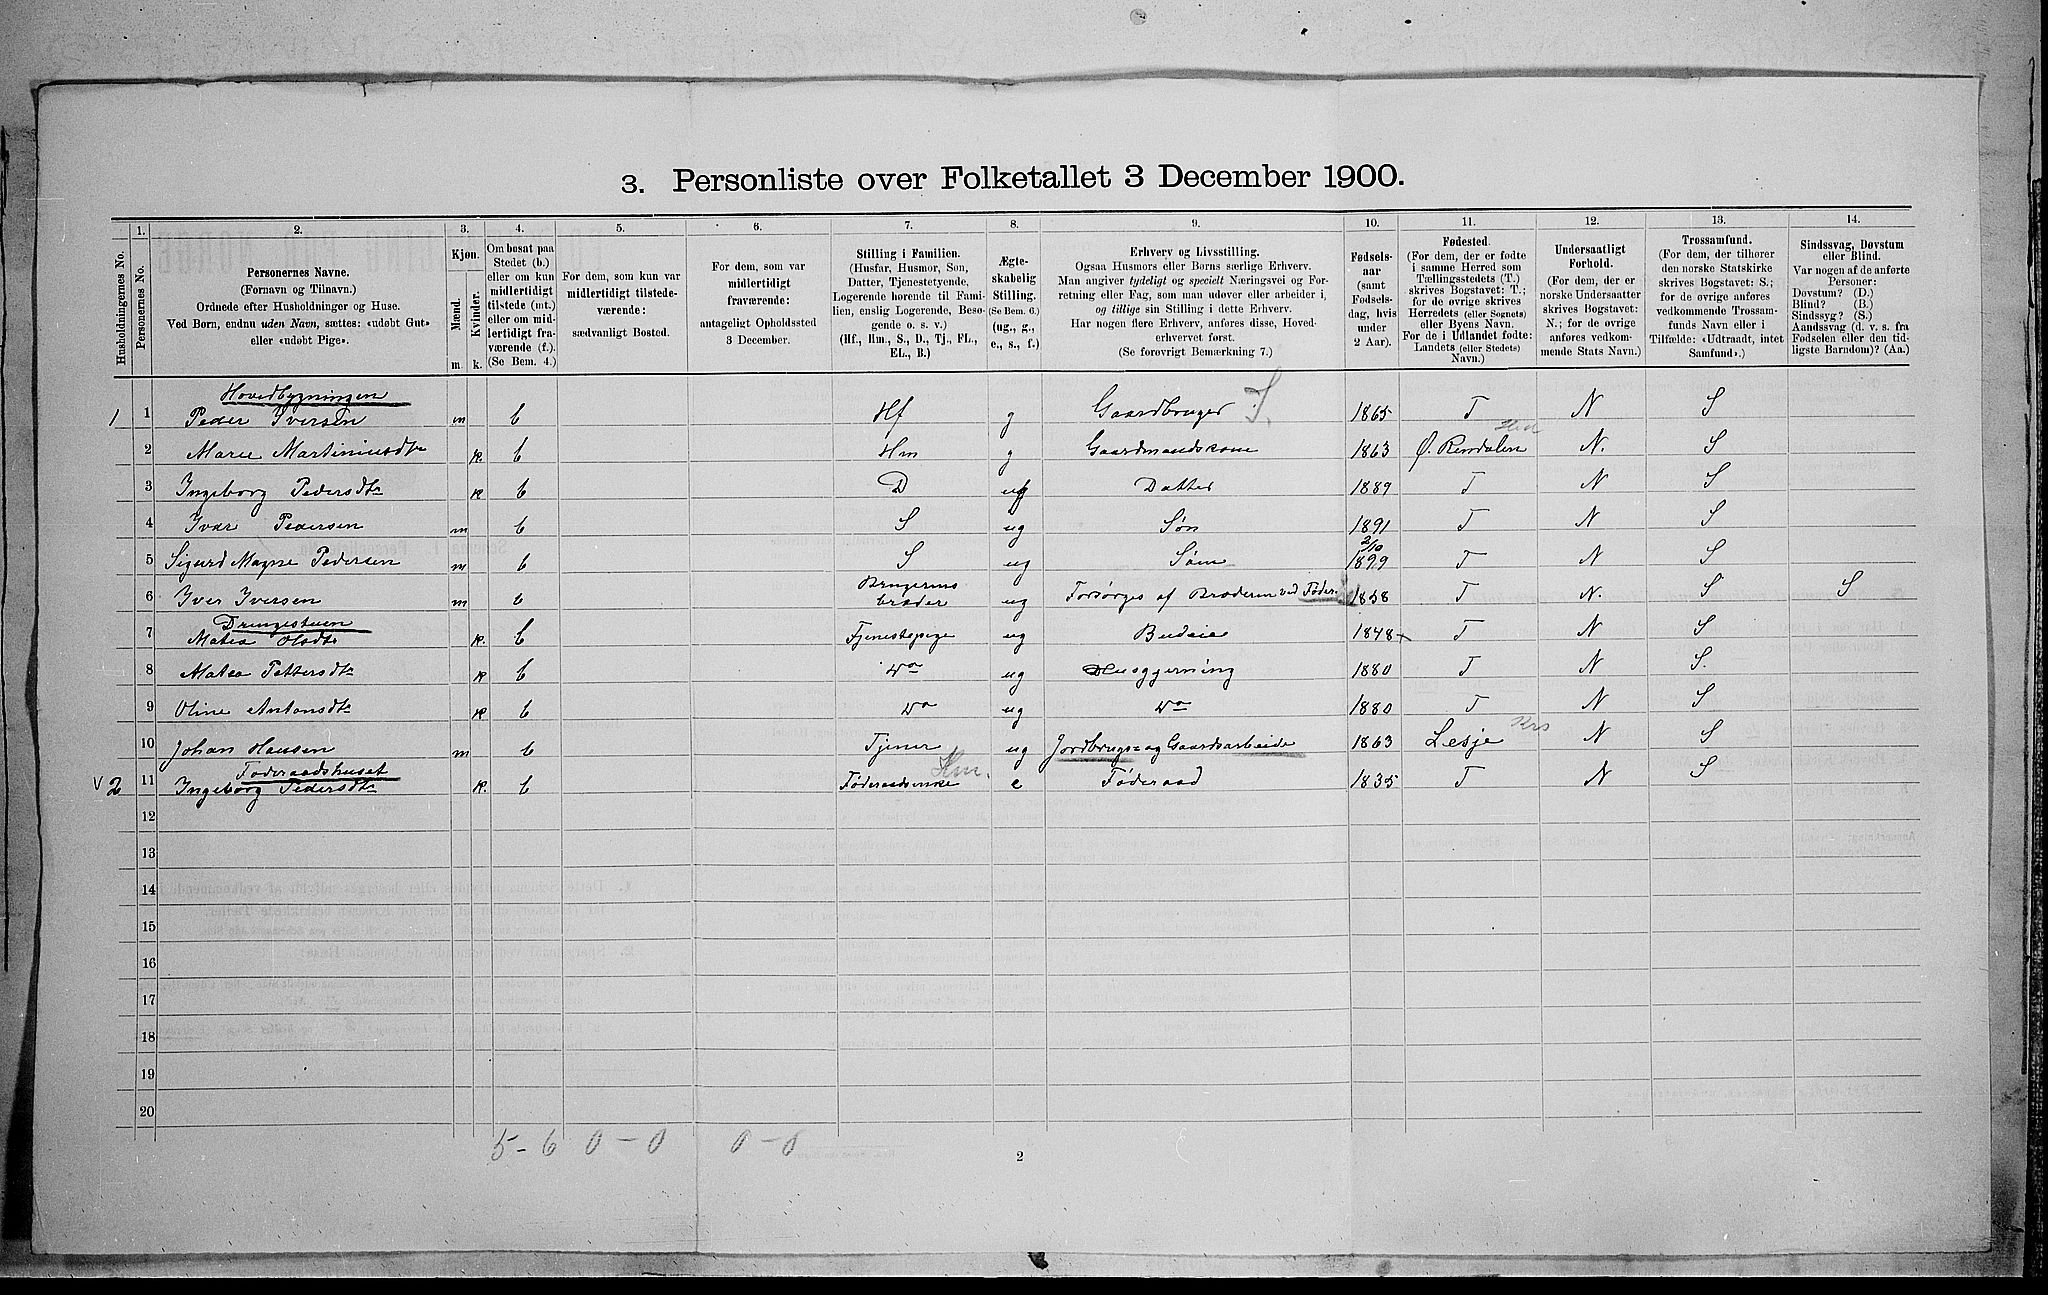 3. Personliste over Folketallet 3 December 1900.
Husholdningernes No.
1. Personernes No.
2. Personernes Navne.
(Fornavn og Tilnavn.)
Ordnede efter Husholdninger og Huse.
Ved Børn, endnu uden Navn, sættes: «udøbt Gut»
eller «udøbt Pige».
3. Kjøn.
Mænd. m.
Kvinder. k.
4. Om bosat paa
Stedet (b.)
eller om kun
midlertidigt
tilstede (mt.)
eller om mid-
lertidigt fra-
værende (f.).
(Se Bem. 4.)
5. For dem, som kun var
midlertidigt tilstede-
værende:
sædvanligt Bosted.
6. For dem, som var
midlertidigt
fraværende:
antageligt Opholdssted
3 December.
7. Stilling i Familien.
(Husfar, Husmor, Søn,
Datter, Tjenestetyende,
Logerende hørende til Fami-
lien, enslig Logerende, Besø-
gende o. s. v.)
(Hf., Hm., S., D., Tj., FL.,
EL., B.)
8. Ægte-
skabelig
Stilling.
(Se Bem. 6.)
(ug., g.,
e., s., f.)
9. Erhverv og Livsstilling.
Ogsaa Husmors eller Børns særlige Erhverv.
Man angiver tydeligt og specielt Næringsvei og For-
retning eller Fag, som man udøver eller arbeider i,
og tillige sin Stilling i dette Erhverv.
Har nogen flere Erhverv, anføres disse, Hoved-
erhvervet først.
(Se forøvrigt Bemærkning 7.)
10. Fødsels-
aar
(samt
Fødsels-
dag, hvis
under
2 Aar).
11. Fødested.
(For dem, der er fødte
i samme Herred som
Tællingsstedets (T.)
skrives Bogstavet: T.;
for de øvrige skrives
Herredets (eller Sognets)
eller Byens Navn.
For de i Udlandet fødte:
Landets (eller Stedets)
Navn.)
12. Undersaatligt
Forhold.
(For dem, der er
norske Undersaatter
skrives Bogstavet:
N.; for de øvrige
anføres vedkom-
mende Stats Navn.)
13. Trossamfund.
(For dem, der tilhører
den norske Statskirke
skrives Bogstavet: S.;
for de øvrige anføres
vedkommende Trossam-
funds Navn eller i
Tilfælde: «Udtraadt, intet
Samfund».)
14. Sindssvag, Døvstum
eller Blind.
Var nogen af de anførte
Personer:
Døvstum? (D.)
Blind? (B.)
Sindssyg? (S.)
Aandssvag (d. v. s. fra
Fødselen eller den tid-
ligste Barndom)? (Aa.)
Hovedbygningen
1 1 Peder Iversen m b Hf g Gaardbruger S. 1865 T N S
2 Marie Martiniusdtr k. b Hm g Gaardmandskone 1863 Ø. Rendalen Hed N. S
3 Ingeborg Pedersdtr k b D ug Datter 1889 T N S
4 Ivar Pedersen m b S ug Søn 1891 T N S
5 Sigurd Magne Pedersen m b S ug Søn 2/10 1899 T N S
6 Iver Iversen m b Brugerens broder ug Forsørges af Broderen ved Føder. 1858 T N. S S
Drengestuen
7 Matea Olsdtr k b Tjenestepige ug Budeie 1848 T N S
8 Matea Pettersdtr k b do ug Husgjerning 1880 T N S.
9 Oline Antonsdtr k b do ug do 1880 T N S
10 Johan Hansen m b Tjener ug Jordbrugs- og Gaardsarbeide 1863 Lesje Krs N S
Føderaadshuset
v 2 11 Ingeborg Pedersdtr k. b Føderaadsenke Hm. e Føderaad 1835 T N S
12
13
14
15
16
17
18
19
20
5 - 6 0 - 0 0 - 0
2